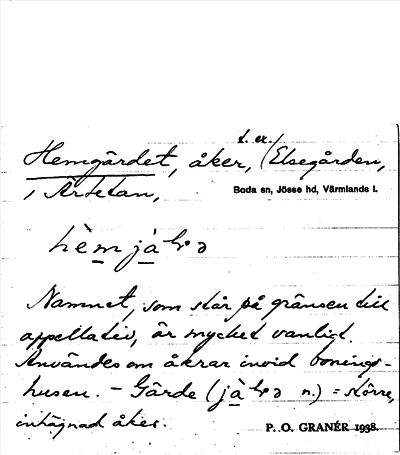 t. ex.
Hemgärdet, åker, (Elsegården,
i Ärtetan,
Boda sn, Jösse hd, Värmlands l.
hèmjà
Namnet, som står på gränsen till
appellativ, är mycket vanligt.
Användes om åkrar invid bonings-
husen. – Gärde (jà n.) = större,
inhägnad åker.
P. O. GRANÉR 1938.